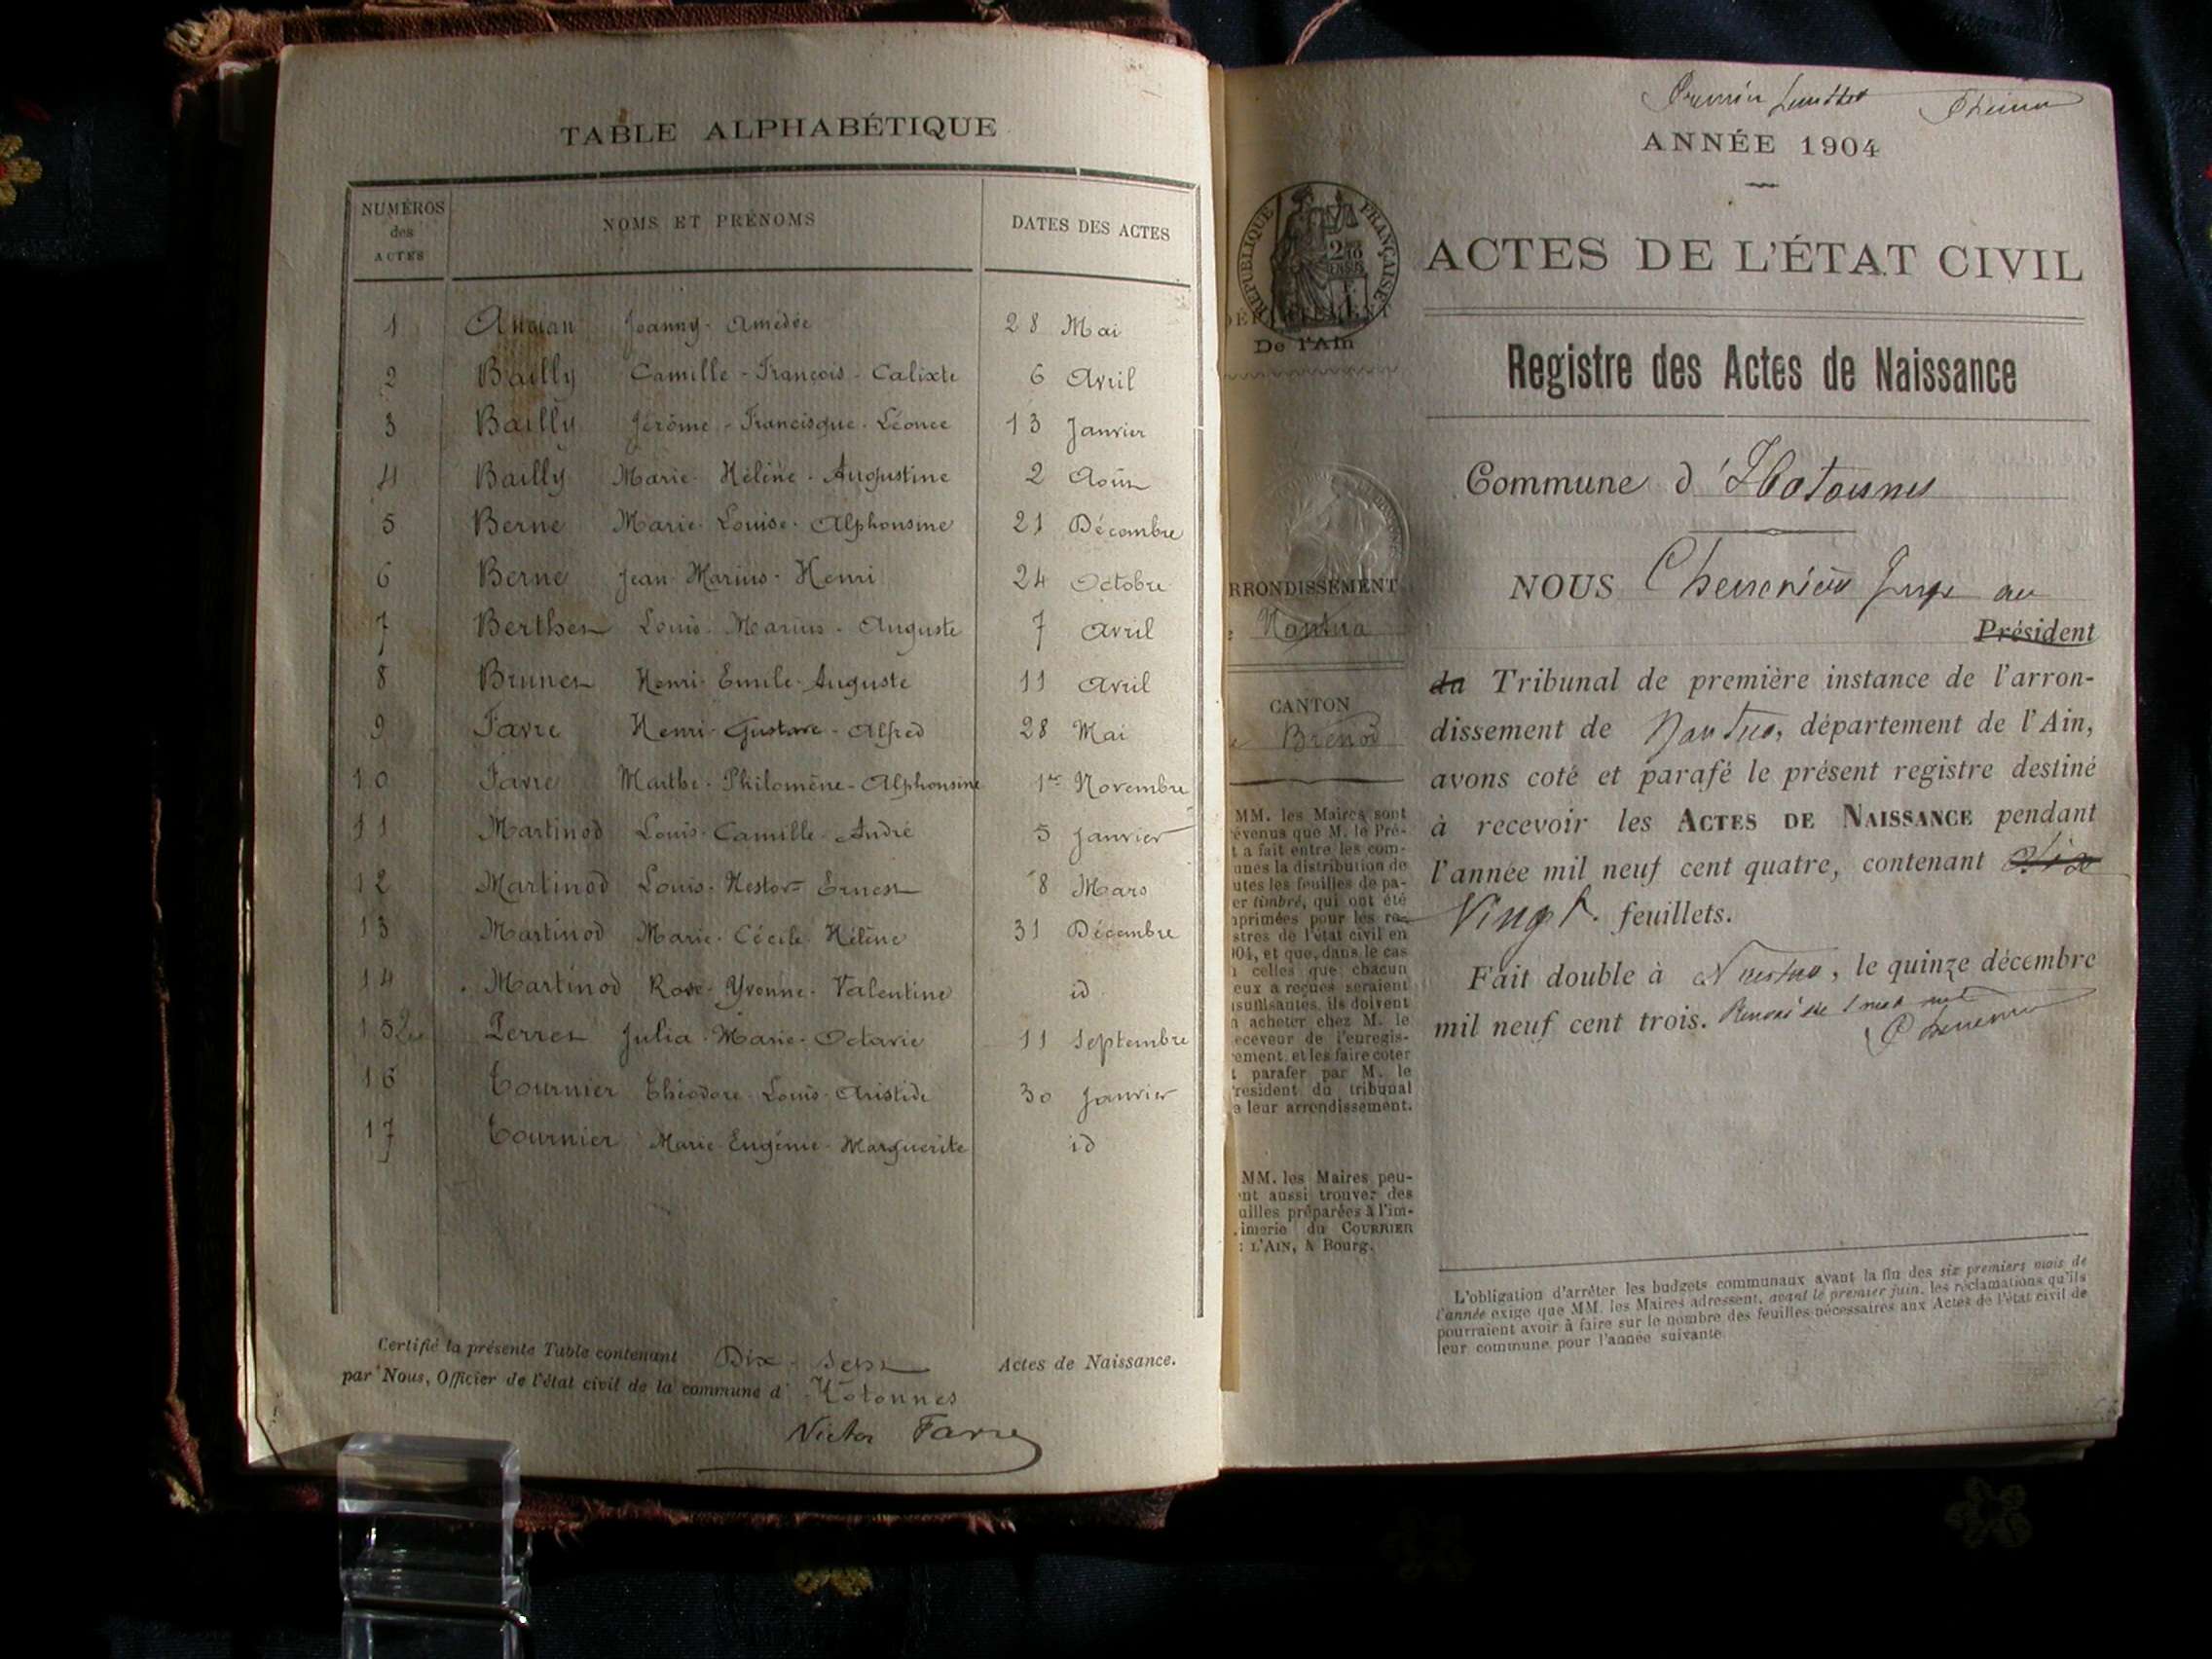 TABLE ALPHABÉTIQUE
NUMÉROS des ACTES
NOMS ET PRÉNOMS
DATES DES ACTES
1 Joanny - Amédée 28 Mai
2 Bailly Camille - François - Calixte 6 Avril
3 Bailly Jérôme - Francisque - Léonce 13 Janvier
4 Bailly Marie - Hélène - Augustine 2 Août
5 Berne Marie - Louise - Alphonsine 21 Décembre
6 Berne Jean - Marius - Henri 24 Octobre
7 Berthet Louis - Marius - Auguste 7 Avril
8 Brunet Henri - Emile - Auguste 11 Avril
9 Favre Henri - Gustave - Alfred 28 Mai
10 Favre Marthe - Philomène - Alphonsine 1er Novembre
11 Martinod Louis - Camille - André 5 Janvier
12 Martinod Louis - Nestor - Ernest 8 Mars
13 Martinod Marie - Cécile - Hélène 31 Décembre
14 Martinod Rose - Yvonne - Valentine id
15 Perret Julia - Marie - Octavie 11 Septembre
16 Tournier Théodore - Louis - Aristide 30 Janvier
17 Tournier Marie - Eugénie - Marguerite id
Certifié la présente Table contenant Dix-Sept Actes de Naissance.
par Nous, Officier de l'état civil de la commune d' Hotonnes
Victor Favre
Premier feuillet
ANNÉE 1904
RÉPUBLIQUE FRANÇAISE
DÉPARTEMENT
De l'Ain
ACTES DE L'ÉTAT CIVIL
Registre des Actes de Naissance
Commune d'Hotonnes
RRONDISSEMENT
Nantua
CANTON
Brénod
MM. les Maires sont
évenus que M. le Pré-
t a fait entre les com-
unes la distribution de
utes les feuilles de pa-
er timbré, qui ont été
primées pour les re-
stres de l'état civil en
904, et que, dans le cas
celles que chacun
eux a reçues seraient
nsuffisantes, ils doivent
n acheter chez M. le
eceveur de l'enregis-
ement, et les faire coter
t parafer par M. le
résident du tribunal
e leur arrondissement.
MM. les Maires peu-
nt aussi trouver des
uilles préparées à l'im-
imerie du COURRIER
L'AIN, à Bourg.
NOUS Juge au
Président
du Tribunal de première instance de l'arron-
dissement de Nantua, département de l'Ain,
avons coté et parafé le présent registre destiné
à recevoir les ACTES DE NAISSANCE pendant
l'année mil neuf cent quatre, contenant
Vingt feuillets.
Fait double à Nantua, le quinze décembre
mil neuf cent trois.
L'obligation d'arrêter les budgets communaux avant la fin des six premiers mois de
l'année exige que MM. les Maires adressent, avant le premier juin, les réclamations qu'ils
pourraient avoir à faire sur le nombre des feuilles nécessaires aux Actes de l'état civil de
leur commune pour l'année suivante.